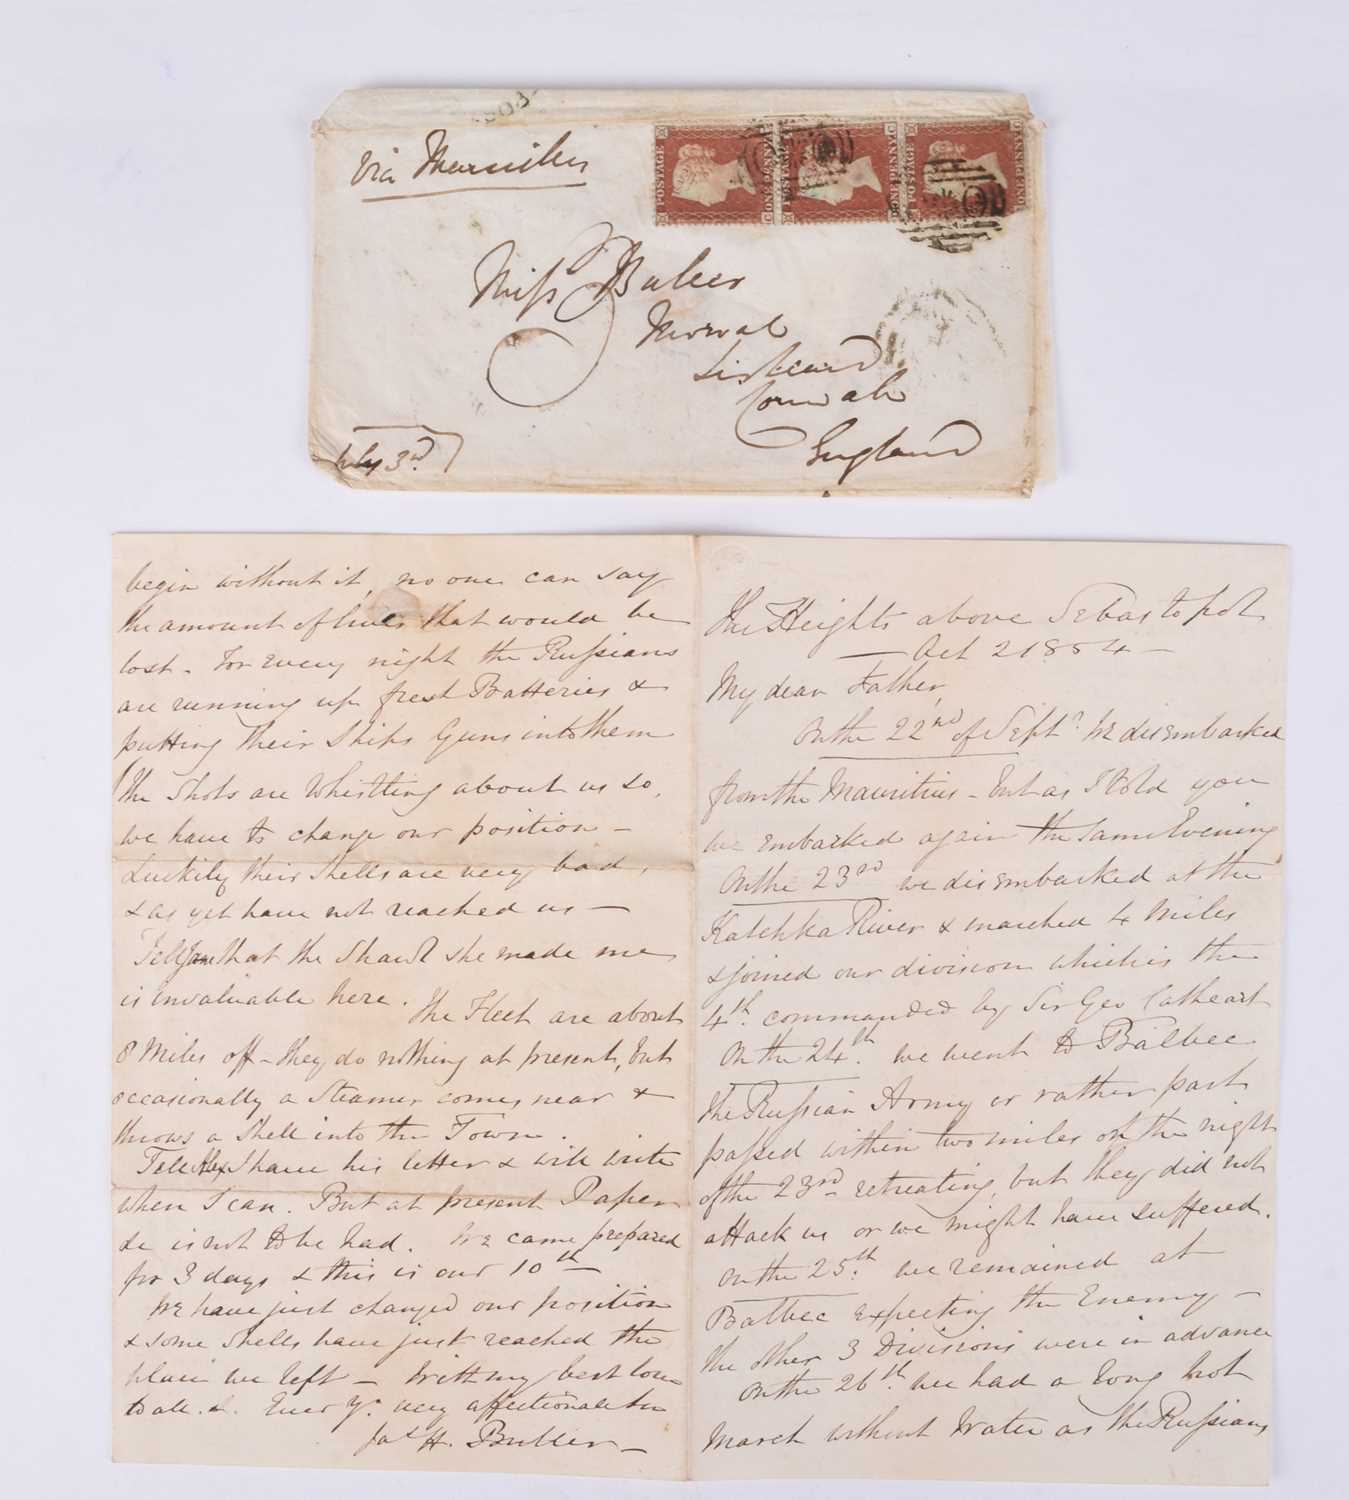 via Marseilles
POSTAGE
ONE PENNY
POSTAGE
ONE PENNY
POSTAGE
ONE PENNY
Miss Buller
Morval
Liskeard
Cornwall
England
July 3rd
The Heights above Sebastopol
Oct 2 1854
My dear Father,
On the 22nd of Septr. We disembarked
from the Mauritius - but as I told you
we embarked again the same Evening
On the 23rd we disembarked at the
Katchka River & marched 4 Miles
& joined our division which is the
4th. commanded by Sir Geo Cathcart
On the 24th. we went to Balbec
The Russian Army or rather part
passed within two miles on the night
of the 23rd - retreating, but they did not
attack us or we might have suffered.
On the 25th. we remained at
Balbec expecting the Enemy -
The other 3 Divisions were in advance
On the 26th. we had a long hot
March without Water as the Russians
begin without it, no one can say
the amount of lives that would be
lost - For every night the Russians
are running up fresh Batteries &
putting their Ships Guns into them
The Shots are Whistling about us so,
we have to change our position -
Luckily their Shells are very bad,
& as yet have not reached us -
Tell Jane that the Shawl she made me
is invaluable here. The Fleet are about
8 Miles off - they do nothing at present, but
occasionally a Steamer comes near &
throws a Shell into the Town.
Tell I have his letter & will write
when I can. But at present Paper
&c is not to be had. We came prepared
for 3 days & this is our 10th
We have just changed our position
& some Shells have just reached the
place we left - With my best love
to all. &. Ever Yr. very affectionate Son
Jas H. Buller -